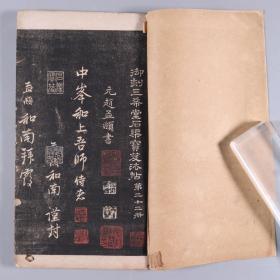 御刻三希堂石渠寶笈法帖第二十二冊
元趙孟頫書
中峯和上吾師 侍者
孟頫和南謹封
孟頫和南拜覆